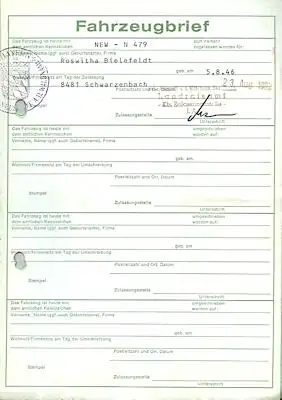 Fahrzeugbrief
Das Fahrzeug ist heute mit dem amtlichen Kennzeichen NEW - N 479 zum Verkehr zugelassen worden für:
Name, Vorname (ggf. auch Geburtsname), Firma
Roswitha Bielefeldt geb. am 5.8.46
am Tag der Zulassung
8481 Schwarzenbach
Landratsamt
Zulassungsstelle
Unterschrift
Das Fahrzeug ist heute mit dem amtlichen Kennzeichen umgeschrieben worden auf:
Vorname, Name (ggf. auch Geburtsname), Firma
geb. am
Wohnort/Firmensitz am Tag der Umschreibung
Postleitzahl und Ort, Datum
Stempel
Zulassungsstelle
Unterschrift
Das Fahrzeug ist heute mit dem amtlichen Kennzeichen umgeschrieben worden auf:
Vorname, Name (ggf. auch Geburtsname), Firma
geb. am
Wohnort/Firmensitz am Tag der Umschreibung
Postleitzahl und Ort, Datum
Stempel
Zulassungsstelle
Unterschrift
Das Fahrzeug ist heute mit dem amtlichen Kennzeichen umgeschrieben worden auf:
Vorname, Name (ggf. auch Geburtsname), Firma
geb. am
Wohnort/Firmensitz am Tag der Umschreibung
Postleitzahl und Ort, Datum
Stempel
Zulassungsstelle
Unterschrift